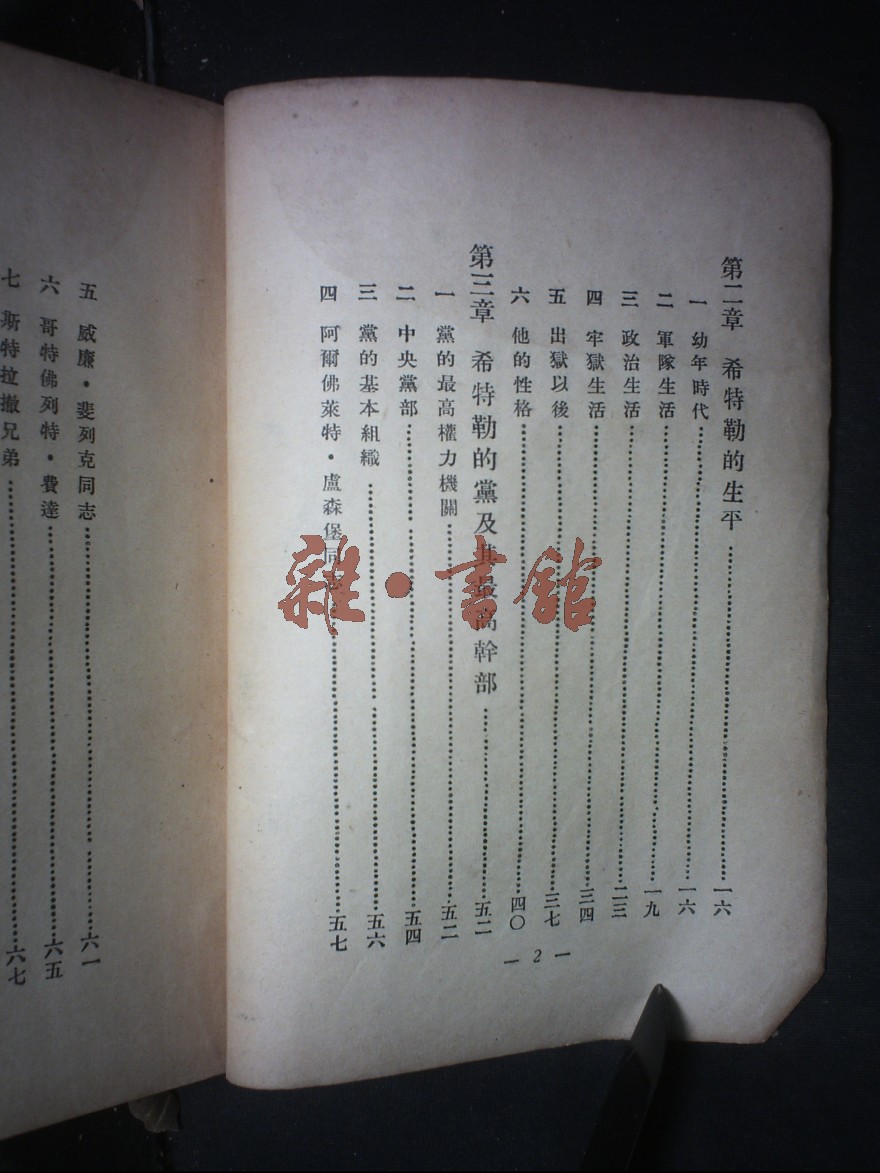 第二章 希特勒的生平……一六
一 幼年時代……一六
二 軍隊生活……一九
三 政治生活……二三
四 牢獄生活……三四
五 出獄以後……三七
六 他的性格……四〇
第三章 希特勒的黨及其最高幹部……五二
一 黨的最高權力機關……五二
二 中央黨部……五四
三 黨的基本組織……五六
四 阿爾佛萊特·盧森堡同志……五七
— 2 —
五 威廉·斐列克同志……六一
六 哥特佛列特·費達……六五
七 斯特拉撤兄弟……六七
雜·書館